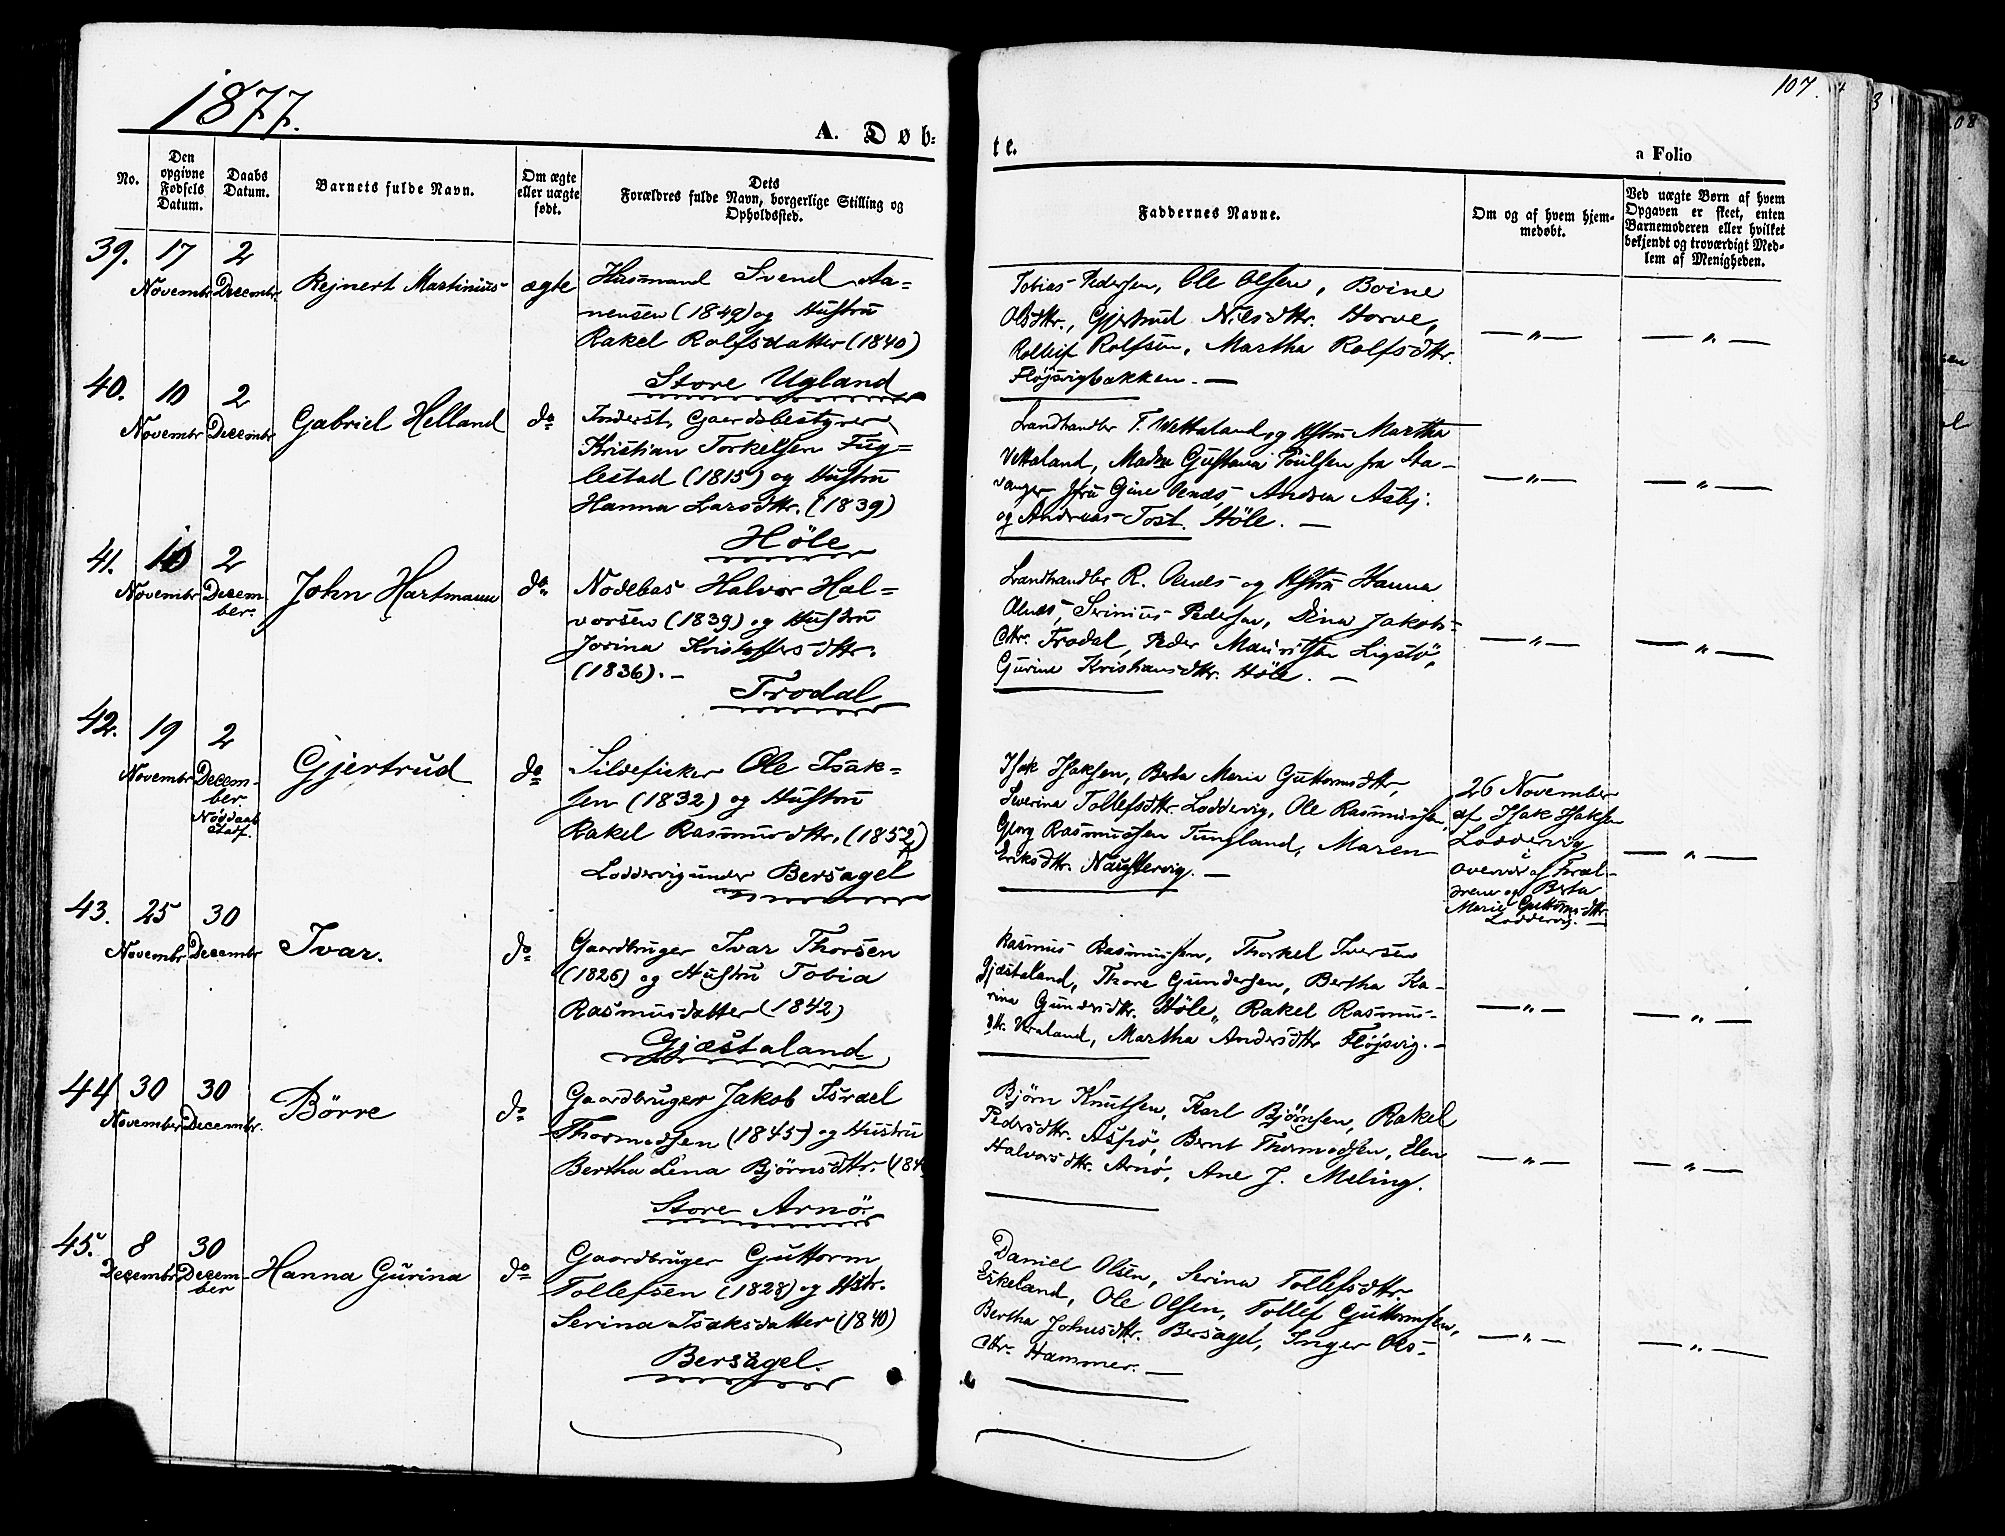 1877.
107.
A. Døb-
te.
a Folio
No.
Den opgivne Fødsels Datum.
Daabs Datum.
Barnets fulde Navn.
Om ægte eller uægte født.
Dets Forældres fulde Navn, borgerlige Stilling og Opholdssted.
Faddernes Navne.
Om og af hvem hjemmedøbt.
Ved uægte Børn af hvem Opgaven er skeet, enten Barnemoderen eller hvilket bekjendt og troværdigt Medlem af Menigheden.
39. 17 Novembr 2 Decembr Rejnert Martinius ægte
Husmand Svend Aa-
nensen (1849) og Hustru
Rakel Rolfsdatter (1840)
Store Ugland
Tobias Pedersen, Ole Olsen, Boine
Olsdtr., Gjertrud Nilsdttr. Horve,
Rolleif Rolfsen, Martha Rolfsdtr.
Fløjsvigbækken. —
— " —
— " —
40. 10 Novembr 2 Decembr Gabriel Helland do
Inderst, Gaardsbestyrer
Kristian Torkelsen Fug-
lestad (1815) og Hustru
Hanna Larsdtr. (1839)
Höle
Landhandler T. Vetteland og Hstru Martha
Vettaland, Madm Gustava Poulsen fra Sta-
vanger, Gine Aenæs, Andrea Asbj:
og Andreas Tost. Höle. —
— " —
— " —
41. 10 Novembr 2 Decem-
ber. John Hartmann do
Nodebas Halvor Hal-
vorsen (1839) og Hustru
Jorina Kristoffersdtr.
(1836). —
Trodal
Landhandler R. Aenæs og Hstru Hanna
Aenæs, Serinius Pedersen, Dina Jakobs-
dtr. Trodal, Peder Mauritsen Ligstö,
Gurine Kristiansdtr. Höle. —
— " —
— " —
42. 19 Novembr 2 Decem-
ber.
Nøddaab
Stadf.
Gjertrud do
Sildefisker Ole Isak-
sen (1832) og Hustru
Rakel Rasmusdtr. (1852)
Loddervig under Bersagel
Isak Isaksen, Berta Marie Guttormsdtr,
Severine Tollefsdtr. Loddervig, Ole Rasmussen,
Georg Rasmussen Tungland, Maren
Eriksdtr. Naustervig. —
26 November
af Isak Isaksen
Loddervig
overvær af Foræl-
drene og Berta
Marie Guttormsdtr
Loddervig. —
— " —
43. 25 Novembr 30 Decembr Ivar. do
Gaardbruger Ivar Thorsen
(1826) og Hustru Tobia
Rasmusdatter (1842)
Gjæstaland
Rasmus Rasmussen, Thorkel Iversen
Gjæstaland, Thore Gundersen, Bertha Ka-
rina Gundersdtr. Höle, Rakel Rasmus-
dtr. Kraland, Martha Andersdtr Fløjsvig. —
— " —
— " —
44 30 November 30 Decembr. Börre do
Gaardbruger Jakob Israel
Thormodsen (1845) og Hustru
Bertha Lina Björnsdttr. (184
Store Arnö.
Bjørn Knutsen, Karl Bjørnsen, Rakel
Pedersdtr. Aspö, Bernt Thormodsen, Elen
Halvorsdtr. Arnö, Ane J. Meling.
— " —
— " —
45. 8 Decembr 30 Decem-
ber Hanna Gurina do
Gaardbruger Guttorm
Tollefsen (1828) og Hstr.
Serina Isaksdatter (1840)
Bersagel.
Daniel Olsen, Serina Tollefsdtr.
Eskeland, Ole Olsen, Tollef Guttormsen,
Bertha Johnsdtr. Bersagel, Inger Ols-
dtr. Hammer. —
— " —
— " —